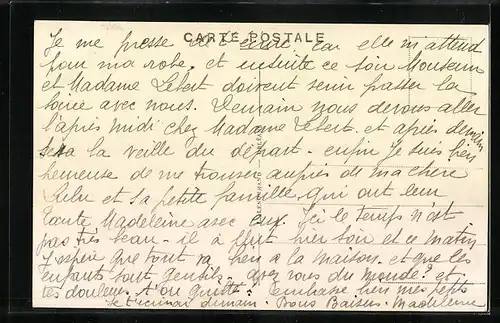 CARTE POSTALE
Je me presse car elle m'attend
pour ma robe. et ensuite ce soir Monsieur
et Madame Lebert doivent venir passer la
soirée avec nous. Demain nous devons aller
l'après midi chez Madame Lebert. et après demain
sera la veille du départ. enfin Je suis bien
heureuse de me trouver auprès de ma chère
Lulu et sa petite famille qui ont leur
Madeleine avec eux. Ici le temps n'est
pas très beau. il a plut hier soir et ce matin
J'espère que tout va bien à la maison. et que les
enfants sont gentils. avez vous du monde? et
tes douleurs. Embrasse bien mes
Je t'écrirai demain. Bons Baisers. Madeleine